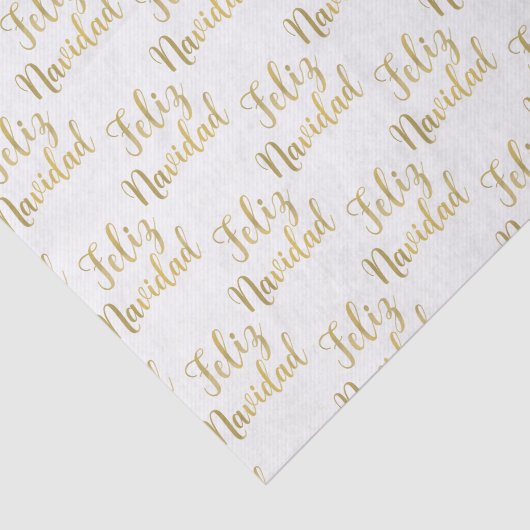 Feliz
Navidad
Feliz
Navidad
Feliz
Navidad
Feliz
Navidad
Feliz
Navidad
Feliz
Navidad
Feliz
Navidad
Feliz
Navidad
Feliz
Navidad
Feliz